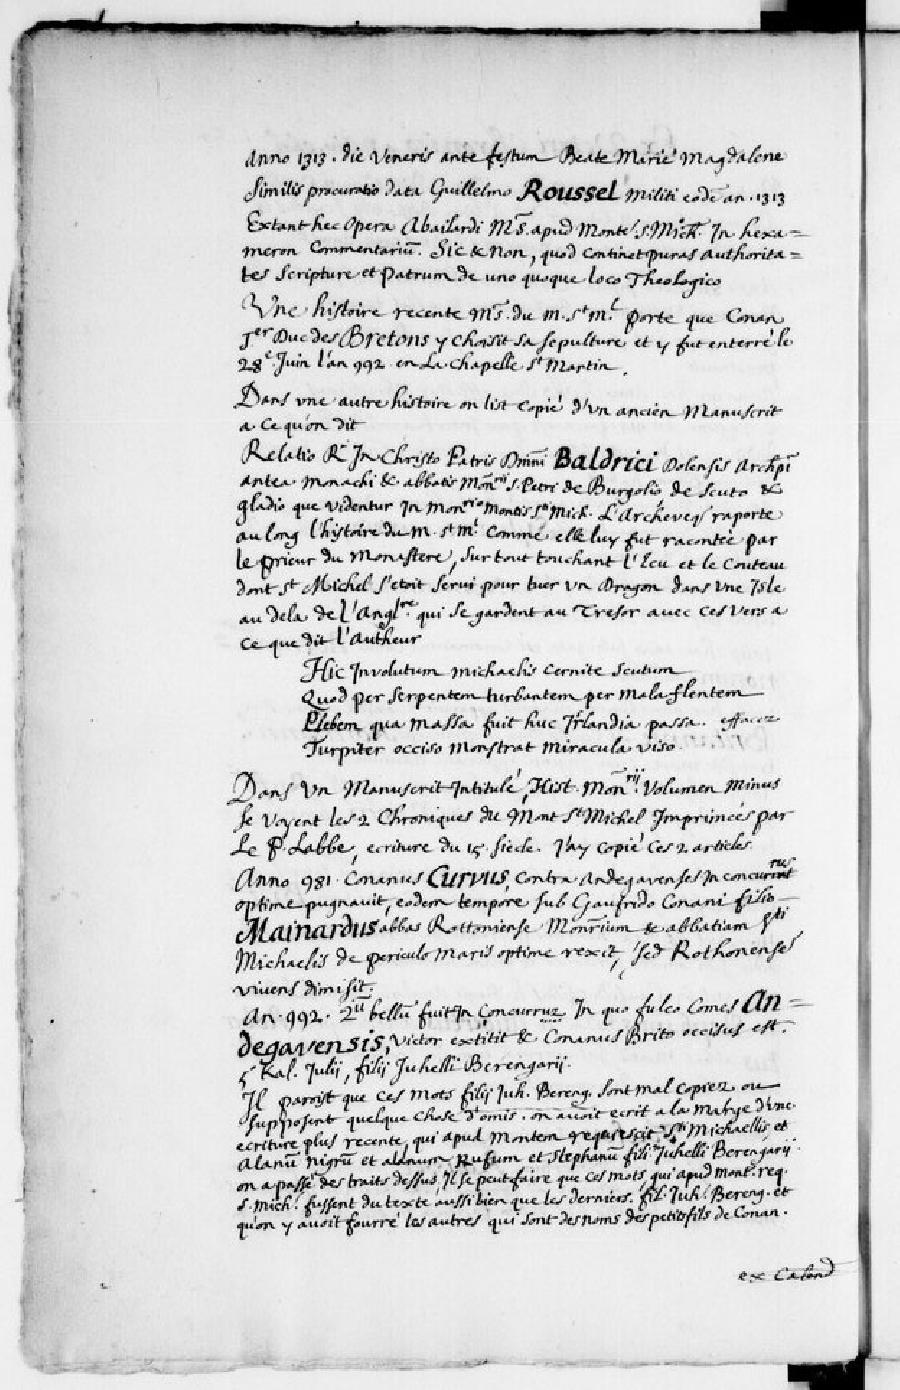 Anno 1313. die Veneris ante festum Beate Marie Magdalene
Similis procuratio data Guillelmo Roussel militi eodē an. 1313
Extant hec opera Abailardi Mˢ. apud Montē S. Mich. In hexa=
meron Commentariū. Sic & Non, quod continet puras authorita=
tes Scripture et Patrum de uno quoque loco Theologico
Vne histoire recente Mˢ. du m. Sᵗ mˡ porte que Conan
Jᵉʳ Duc des Bretons y choisit sa sepulture et y fut enterré le
28ᵉ Juin l'an 992 en La Chapelle Sᵗ Martin.
Dans vne autre histoire on list copié d'vn ancien Manuscrit
a ce qu'on dit
Relatio Rⁱ In Christo Patris Dmni Baldrici Dolensis Archpi
antea monachi & abbatis Monrii S. Petri de Burgolio de Scuto &
gladio que videntur In Monrio Montis Sti Mich. L'Archeveq raporte
au long l'histoire du m. Sᵗ mˡ comme elle luy fut racontée par
le prieur du Monastere, sur tout touchant l'Ecu et le Couteau
dont Sᵗ Michel s'etoit servi pour tuer vn Dragon dans vne Isle
au dela de l'Anglʳᵉ. qui se gardent au Tresor avec ces vers a
ce que dit l'Autheur
Hic Involutum michaelis cernite scutum
Quod per serpentem turbantem per mala flentem
Plebem qua massa fuit huc Irlandia passa. effacez
Turpiter occiso monstrat miracula viso
Dans vn Manuscrit Intitulé, Hist. Monrii. Volumen minus
se voyent les 2 Chroniques du Mont Sᵗ Michel Imprimées par
Le P. Labbe, ecriture du 15 siecle. J'ay copié ces 2 articles
Anno 981. Conanus Curvus, contra Andegavenses In concurrus
optime pugnavit, eodem tempore sub Gaufrido Conani filio
Mainardus abbas Rottoniense Monrium & abbatiam Sti
Michaelis de periculo maris optime rexit, sed Rothonense
vivens dimisit.
An. 992. 2ᵘ bellū fuit In Concurruz In quo fulco Comes An=
degavensis, victor extitit & Conanus Brito occisus est.
5 Kal. Julij, filij Juhelli Berengarij.
Il paroist que ces mots filij Juh. Bereng. sont mal copiez ou
supposent quelque chose d'omis. on avoit ecrit a la marge d'une
ecriture plus recente, qui apud montem requiescit Sti Michaellis et
alanū nigrū et alanum Rufum et Stephanū fili Juhelli Berengarij
on a passé des traits dessus, Il se peut faire que ces mots qui apud mont. req.
S. Mich. fussent du texte aussi bien que les derniers. fil. Juh. Bereng. et
qu'on y avoit fourré les autres qui sont des noms des petits fils de Conan.
ex Calend